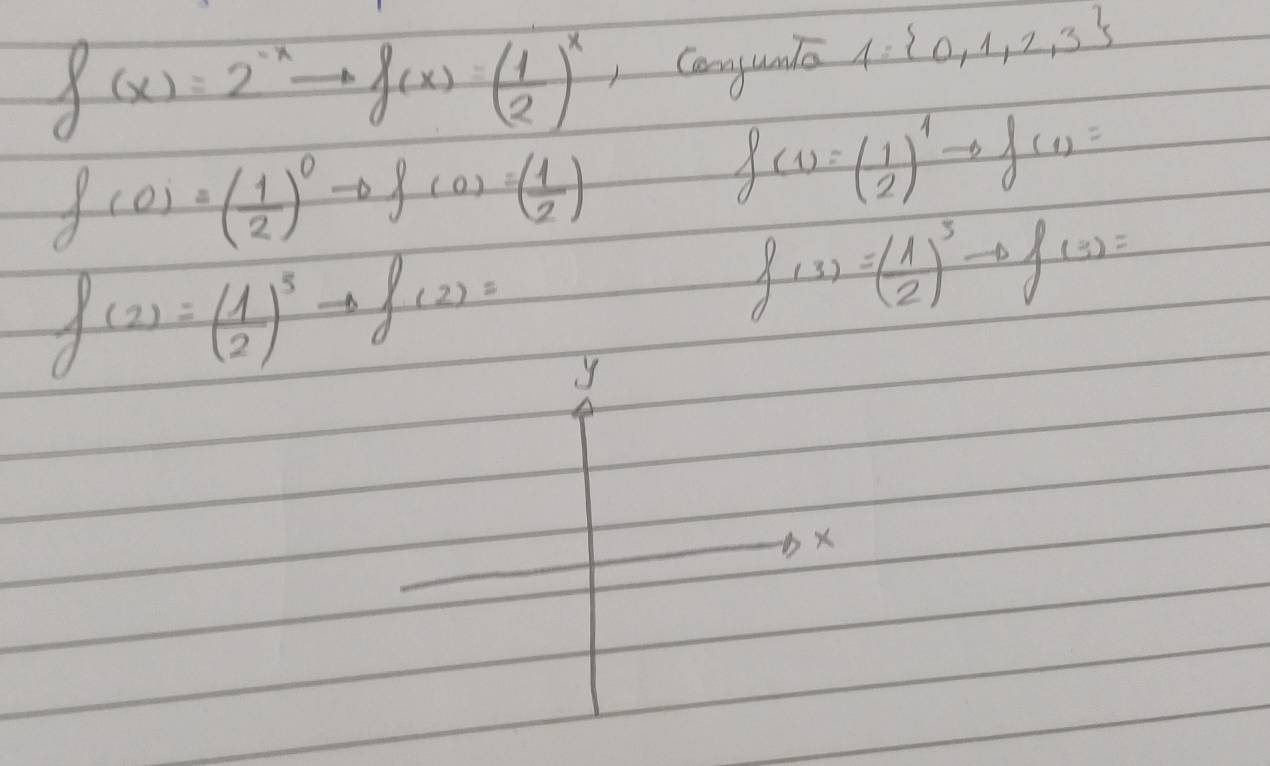 f(x) = 2^-x → f(x) = (1/2)^x, Conjunto 1 = {0, 1, 2, 3}
f(0) = (1/2)^0 → f(0) = (1/2) f(1) = (1/2)^1 → f(1) =
f(2) = (1/2)^3 → f(2) = f(3) = (1/2)^3 → f(3) =
y
x